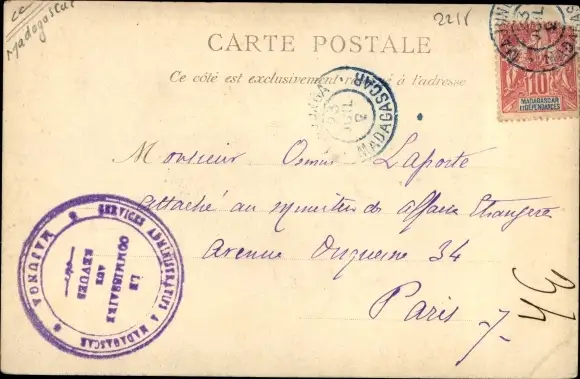 cc
Madagascar
2218
CARTE POSTALE
Ce côté est exclusivement réservé à l'adresse
MAJUNGA
23
JUIL
MADAGASCAR
10
MADAGASCAR
ET DEPENDANCES
Monsieur Laporte
Attaché au ministère des affaires Etrangères
Avenue Duquesne 34
Paris
7
SERVICES ADMINISTRATIFS A MADAGASCAR
MAJUNGA
LE
COMMISSAIRE
AUX
REVUES